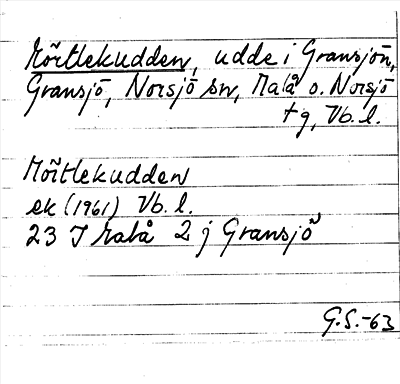 Mörtlekudden, udde i Gransjön,
Gransjö, Norsjö sn, Malå o. Norsjö
tg, Vb. l.
Mörtlekudden
ek (1961) Vb. l.
23 I Malå 2 j Gransjö
G.S.-63